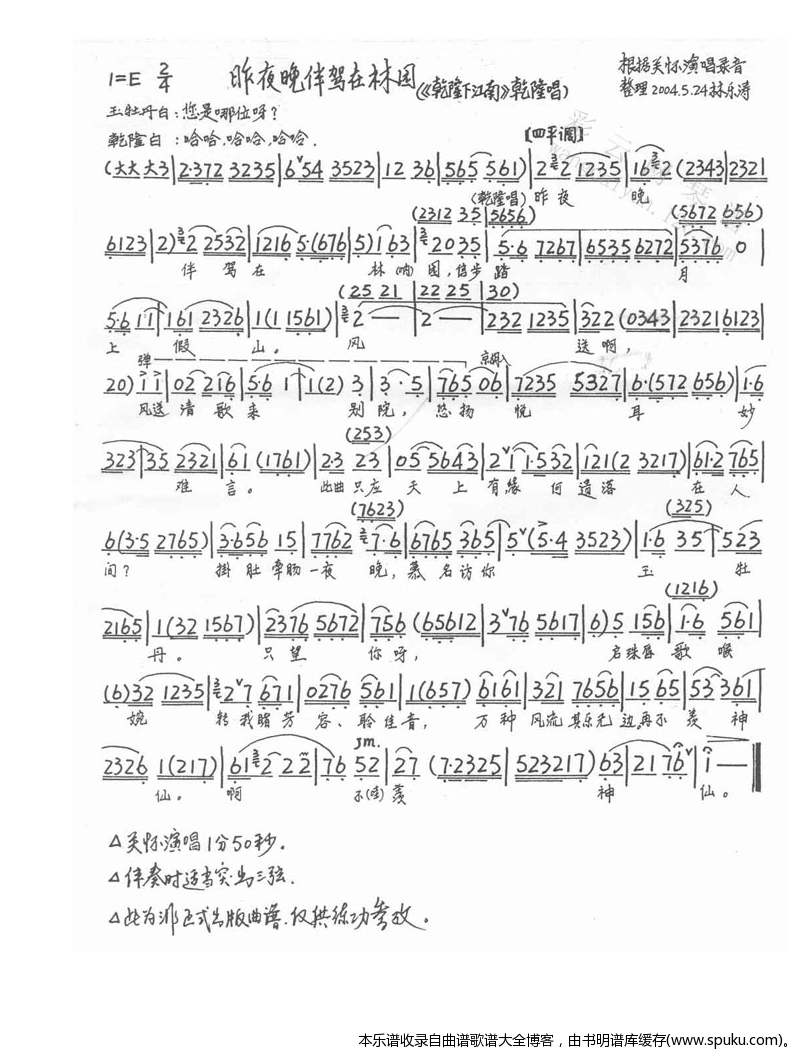 1=E 2/4 昨夜晚伴驾在林园(《乾隆下江南》乾隆唱)
根据关怀演唱录音
整理2004.5.24林乐涛
玉牡丹白:您是哪位呀?
乾隆白:哈哈,哈哈,哈哈.
[四平调]
(大大 大3 | 2·372 3235 | 6ˇ54 3523 | 12 36 | 565 561) | 2 2 1235 | 16 2 (2343 | 2321
(乾隆唱) 昨 夜 晚
(2312 35 | 5656) (5672 656)
6123 | 2) 2 2532 | 1216 5·(676 | 5) 1 63 | 2035 | 5·6 7267 | 6535 6272 | 5376 0 |
伴 驾 在 林 呐 园,信步 踏 月
(25 21 | 22 25 | 30)
5·6 11 | 161 2326 | 1(1 1561) | 2 — | 2 — | 232 1235 | 322 (0343 | 2321 6123
上 假 山。 风 送 啊,
20) 11 | 02 216 | 5·6 1 | 1(2) 3 | 3·5 | 765 06 | 7235 5327 | 6·(572 656) | 1·6
风送 清 歌 来 别 院, 悠 扬 悦 耳 妙
(253)
323 | 35 2321 | 61 (1761) | 2·3 23 | 05 5643 | 2ˇ1 1·532 | 121(2 3217) | 61·2 765 |
难 言。 此曲 只应 天 上 有缘 何 遗落 在 人
(7623) (325)
6(3·5 2765) | 3·656 15 | 7762 7·6 | 6765 365 | 5ˇ(5·4 3523) | 1·6 35 | 523
间? 掛 肚 牵肠 一夜 晚,慕 名访你 玉 牡
(1216)
2165 | 1(32 1567) | 2376 5672 | 756 (65612 | 3ˇ76 5617 | 6)5 156 | 1·6 561 |
丹。 只 望 你 呀, 启珠唇 歌 喉
(6)32 1235 | 2ˇ7 671 | 0276 561 | 1(657) 6161 | 321 7656 | 15 65 | 53 361 |
婉 转 我睹 芳 容、聆 佳 音, 万 种 风流 其乐无 边,再不 羡 神
2326 1(217) | 61 2 2 2 | 76 52 | 27 (7·2325 | 523217) 63 | 21 76ˇ | 1 — ‖
仙。 啊 不(哇) 羡 神 仙。
△关怀演唱1分50秒.
△伴奏时适当突出三弦.
△此为非正式出版曲谱.仅供练功参考。
本乐谱收录自曲谱歌谱大全博客，由书明谱库缓存(www.spuku.com)。